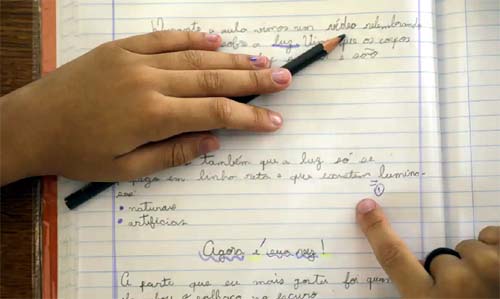 Durante a aula vimos um vídeo relembrando
sobre a luz. Vimos que os corpos
e são
também que a luz só se
propaga em linha reta e que existem lumino-
sos:
• naturas
• artifícias
①
Agora é sua vez!
A parte que eu mais gostei foi quan
o palhaço no escuro